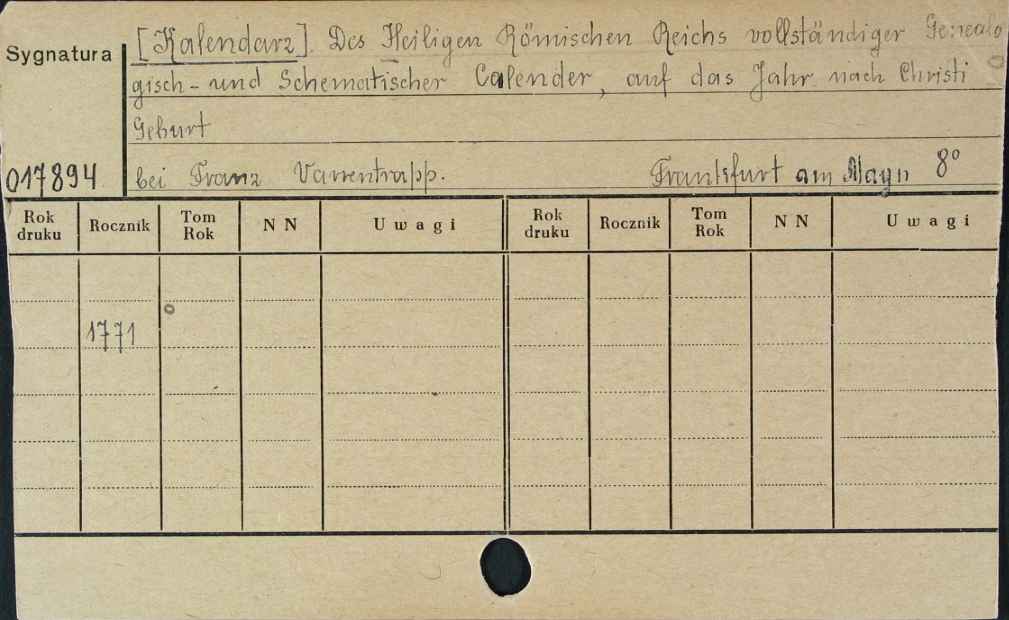 [Kalendarz]. Des Heiligen Römischen Reichs vollständiger Genealo
Sygnatura
gisch - und Schematischer Calender, auf das Jahr nach Christi
Geburt
017894 bei Franz Varrentrapp. Frankfurt am Mayn 8°
Rok druku Rocznik Tom Rok N N Uwagi Rok druku Rocznik Tom Rok N N Uwagi
1771